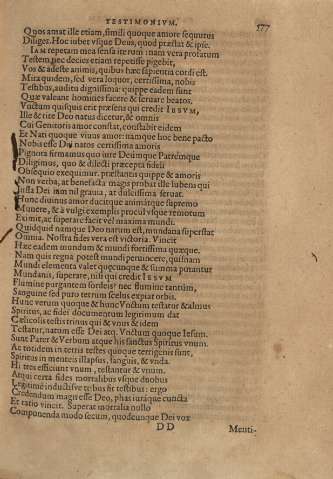 TESTIMONIVM. 577
Quos amat ille etiam, simili quoque amore sequutus
Diliget. Hoc iubet vsque Deus, quod præstat & ipse.
IAM repetam mea sensa iterum: nam vera probatum
Testem, nec decies etiam repetisse pigebit,
Vos & adeste animis, quibus hæc sapientia cordi est.
Mira quidem, sed vera loquor, certissima, nobis
Testibus, audita dignissima: quippe eadem sunt
Quæ valeant homines facere & seruare beatos.
Vnctum quisquis erit præsens qui credit IESVM,
Ille & rite Deo natus dicetur, & omnis
Cui Genitoris amor constat, constabit eidem
Et Nati quoque viuus amor: namque hoc bene pacto
Nobis esse Dei natos certissima amoris
Pignora firmamus quo iure Deumque Patremque
Diligimus, quo & dilecti præcepta fideli
Obsequio exequimur. præstantis quippe & amoris
Non verba, at benefacta magis probat ille iubens qui
Iusta Dei iam nil grauia, at dulcissima seruat.
Hunc diuinus amor ducitque animatque supremo
Munere, & à vulgi exemplo procul vsque remotum
Eximit, ac superare facit vel maxima mundi.
Quidquid namque Deo natum est, mundana superstat
Omnia. Nostra fides vera est victoria. Vincit
Hæc eadem mundum & mundi fortissima quæque.
Nam quis regna potest mundi peruincere, quisnam
Mundi elementa valet quęcunque & summa putantur
Mundanis, superare, nisi qui credit IESVM
Flumine purgantem sordeis? nec flumine tantùm,
Sanguine sed puro terrum scelus expiat orbis.
Hunc verum quoque & hunc Vnctum testatur & almus
Spiritus, ac fidei documentum legitimum dat
Cælicolis testis trinus qui & vnus & idem
Testatur, natum esse Dei atq. Vnctum quoque Iesum.
Sunt Pater & Verbum atque his sanctus Spiritus vnum.
Ac totidem in terris testes quoque terrigenis sunt,
Spiritus in menteis illapsus, sanguis, & vnda.
Hi tres efficiunt vnum, testantur & vnum.
Atqui certa fides mortalibus vsque duobus
Legitimè inductisve tribus sit testibus: ergo
Credendum magis esse Deo, phas iuraque cuncta
Et ratio vincit. Superat mortalia nullo
Componenda modo secum, quodcunque Dei vox
DD Menti-